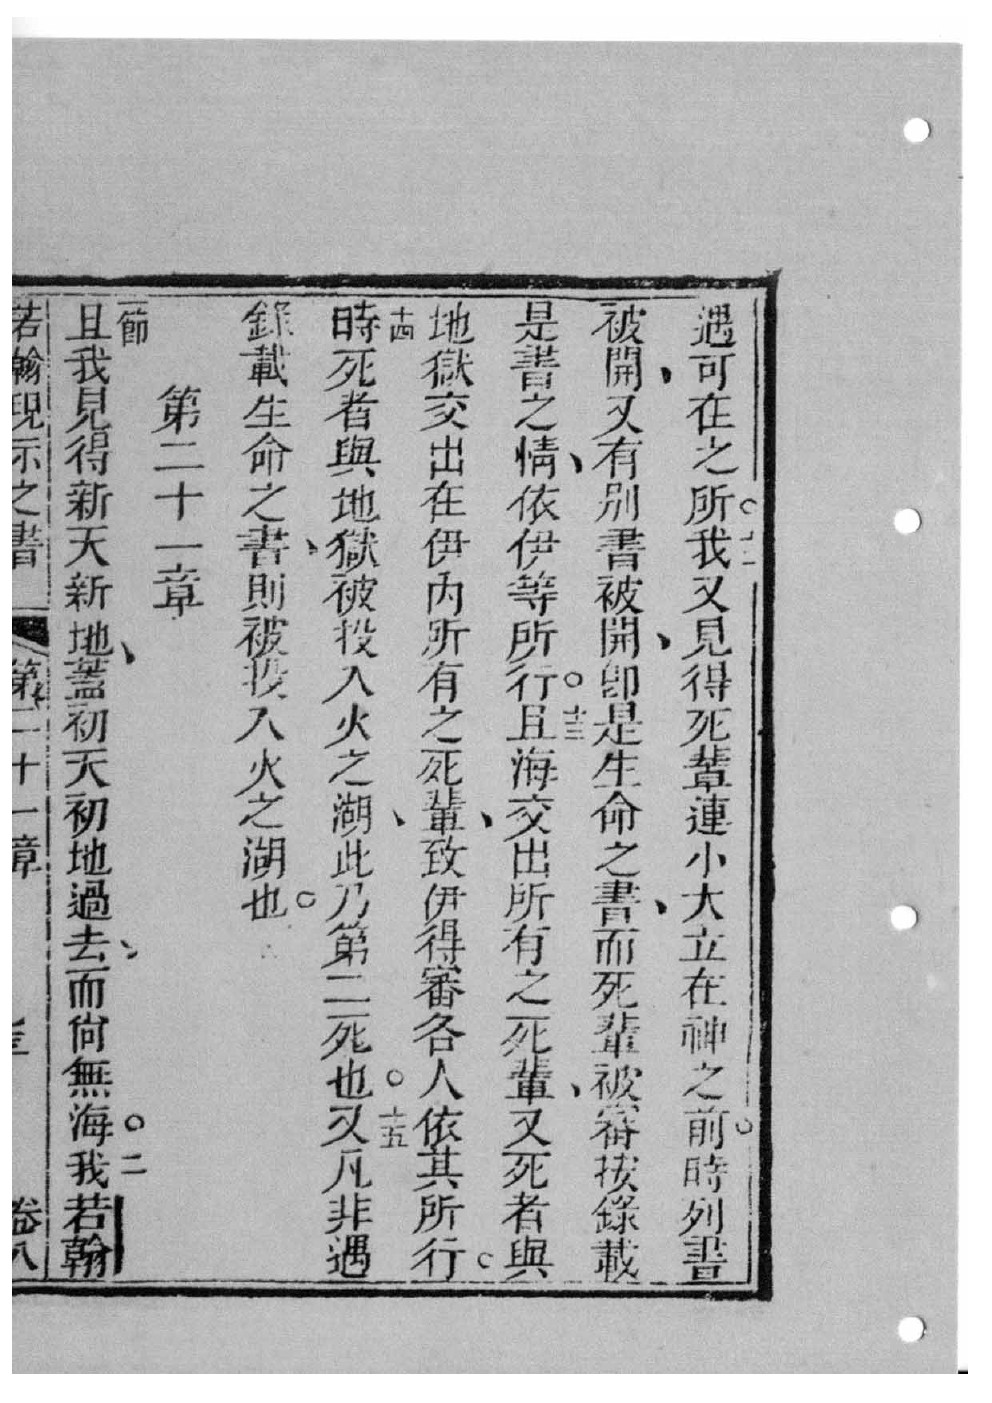 遇可在之所。十二我又見得死輩連小大立在神之前。時列書
被開、又有别書被開、卽是生命之書、而死輩被審按錄載
是書之情、依伊等所行。十三且海交出所有之死輩、又死者與
地獄交出在伊內所有之死輩、致伊得審各人依其所行。
十四時死者與地獄被投入火之湖、此乃第二死也。十五又凡非遇
錄載生命之書、則被投入火之湖也。
第二十一章
一節且我見得新天新地、蓋初天初地過去、而尙無海。二我若翰
若翰現示之書 第二十一章 卷八